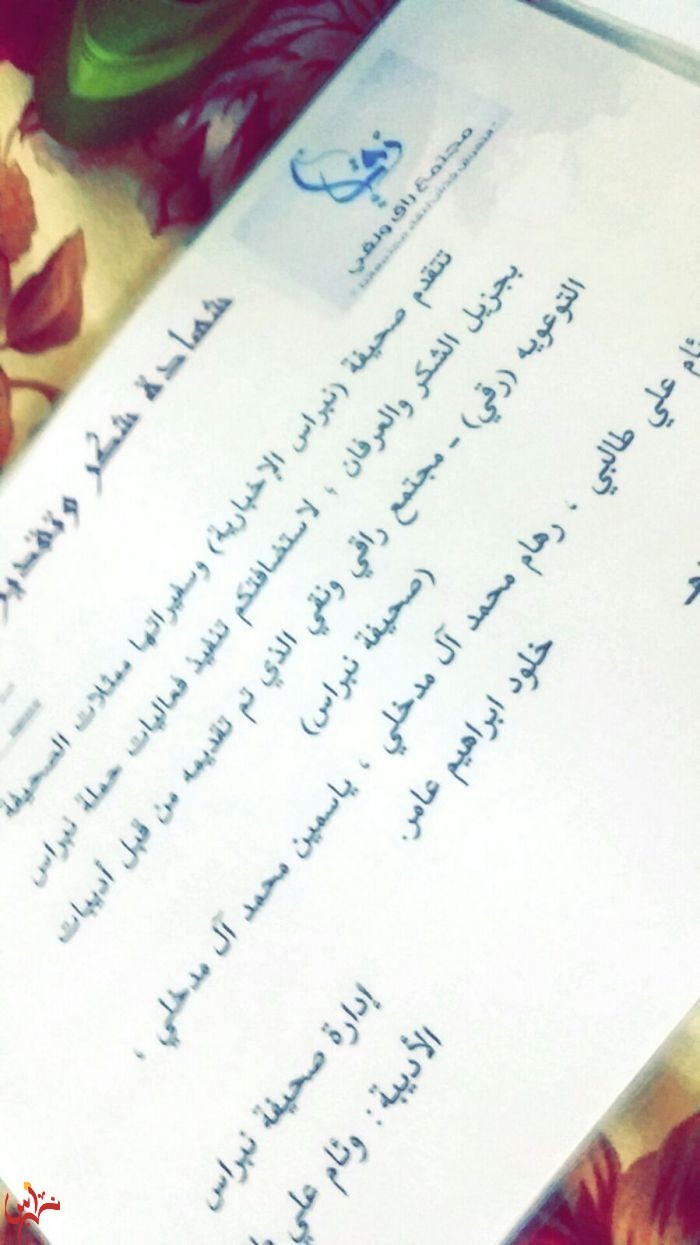 مجتمع راقي ونقي
شهادة شكر وتقدير
تتقدم صحيفة (نبراس الإخبارية) وسفيراتها ممثلات الصحيفة
بجزيل الشكر والعرفان ، لاستضافتكم تنفيذ فعاليات حملة نبراس
التوعويه (رقي) - مجتمع راقي ونقي الذي تم تقديمه من قبل أديبات
(صحيفة نبراس)
ئام علي طالبي ، رهام محمد آل مدخلي ، ياسمين محمد آل مدخلي ،
خلود ابراهيم عامر.
إدارة صحيفة نبراس
الأديبة : وئام علي ط
نبراس